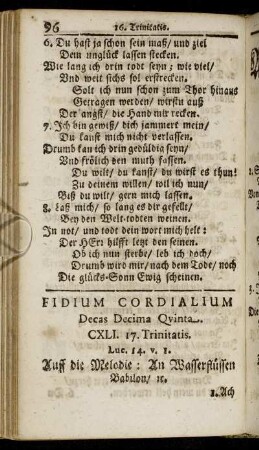 96 16. Trinitatis.
6. Du hast ja schon sein maß/ und ziel
Dem unglück lassen stecken.
Wie lang ich drin todt seyn; wie viel/
Und weit sichs sol erstrecken.
Solt ich nun schon zum Thor hinaus
Getragen werden/ wirstu auß
Der angst/ die Hand mir recken.
7. Ich bin gewiß/ dich jammert mein/
Du kanst mich nicht verlassen.
Drumb kan ich drin gedüldig seyn/
Und frölich den muth fassen.
Du wilt/ du kanst/ du wirst es thun!
Zu deinem willen/ wil ich nun/
Biß du wilt/ gern mich lassen.
8. Laß mich/ so lang es dir gefelt/
Bey den Welt-todten weinen.
In not/ und todt dein wort mich helt:
Der HErr hilfft letzt den seinen.
Ob ich nun sterbe/ leb ich doch/
Drumb wird mir/ nach dem Tode/ noch
Die glücks-Sonn Ewig scheinen.
FIDIUM CORDIALIUM
Decas Decima Qvinta.
CXLI. 17. Trinitatis.
Luc. 14. v. 1.
Auff die Melodie: An Wasserflüssen
Babilon/ ꝛc.
1. Ach